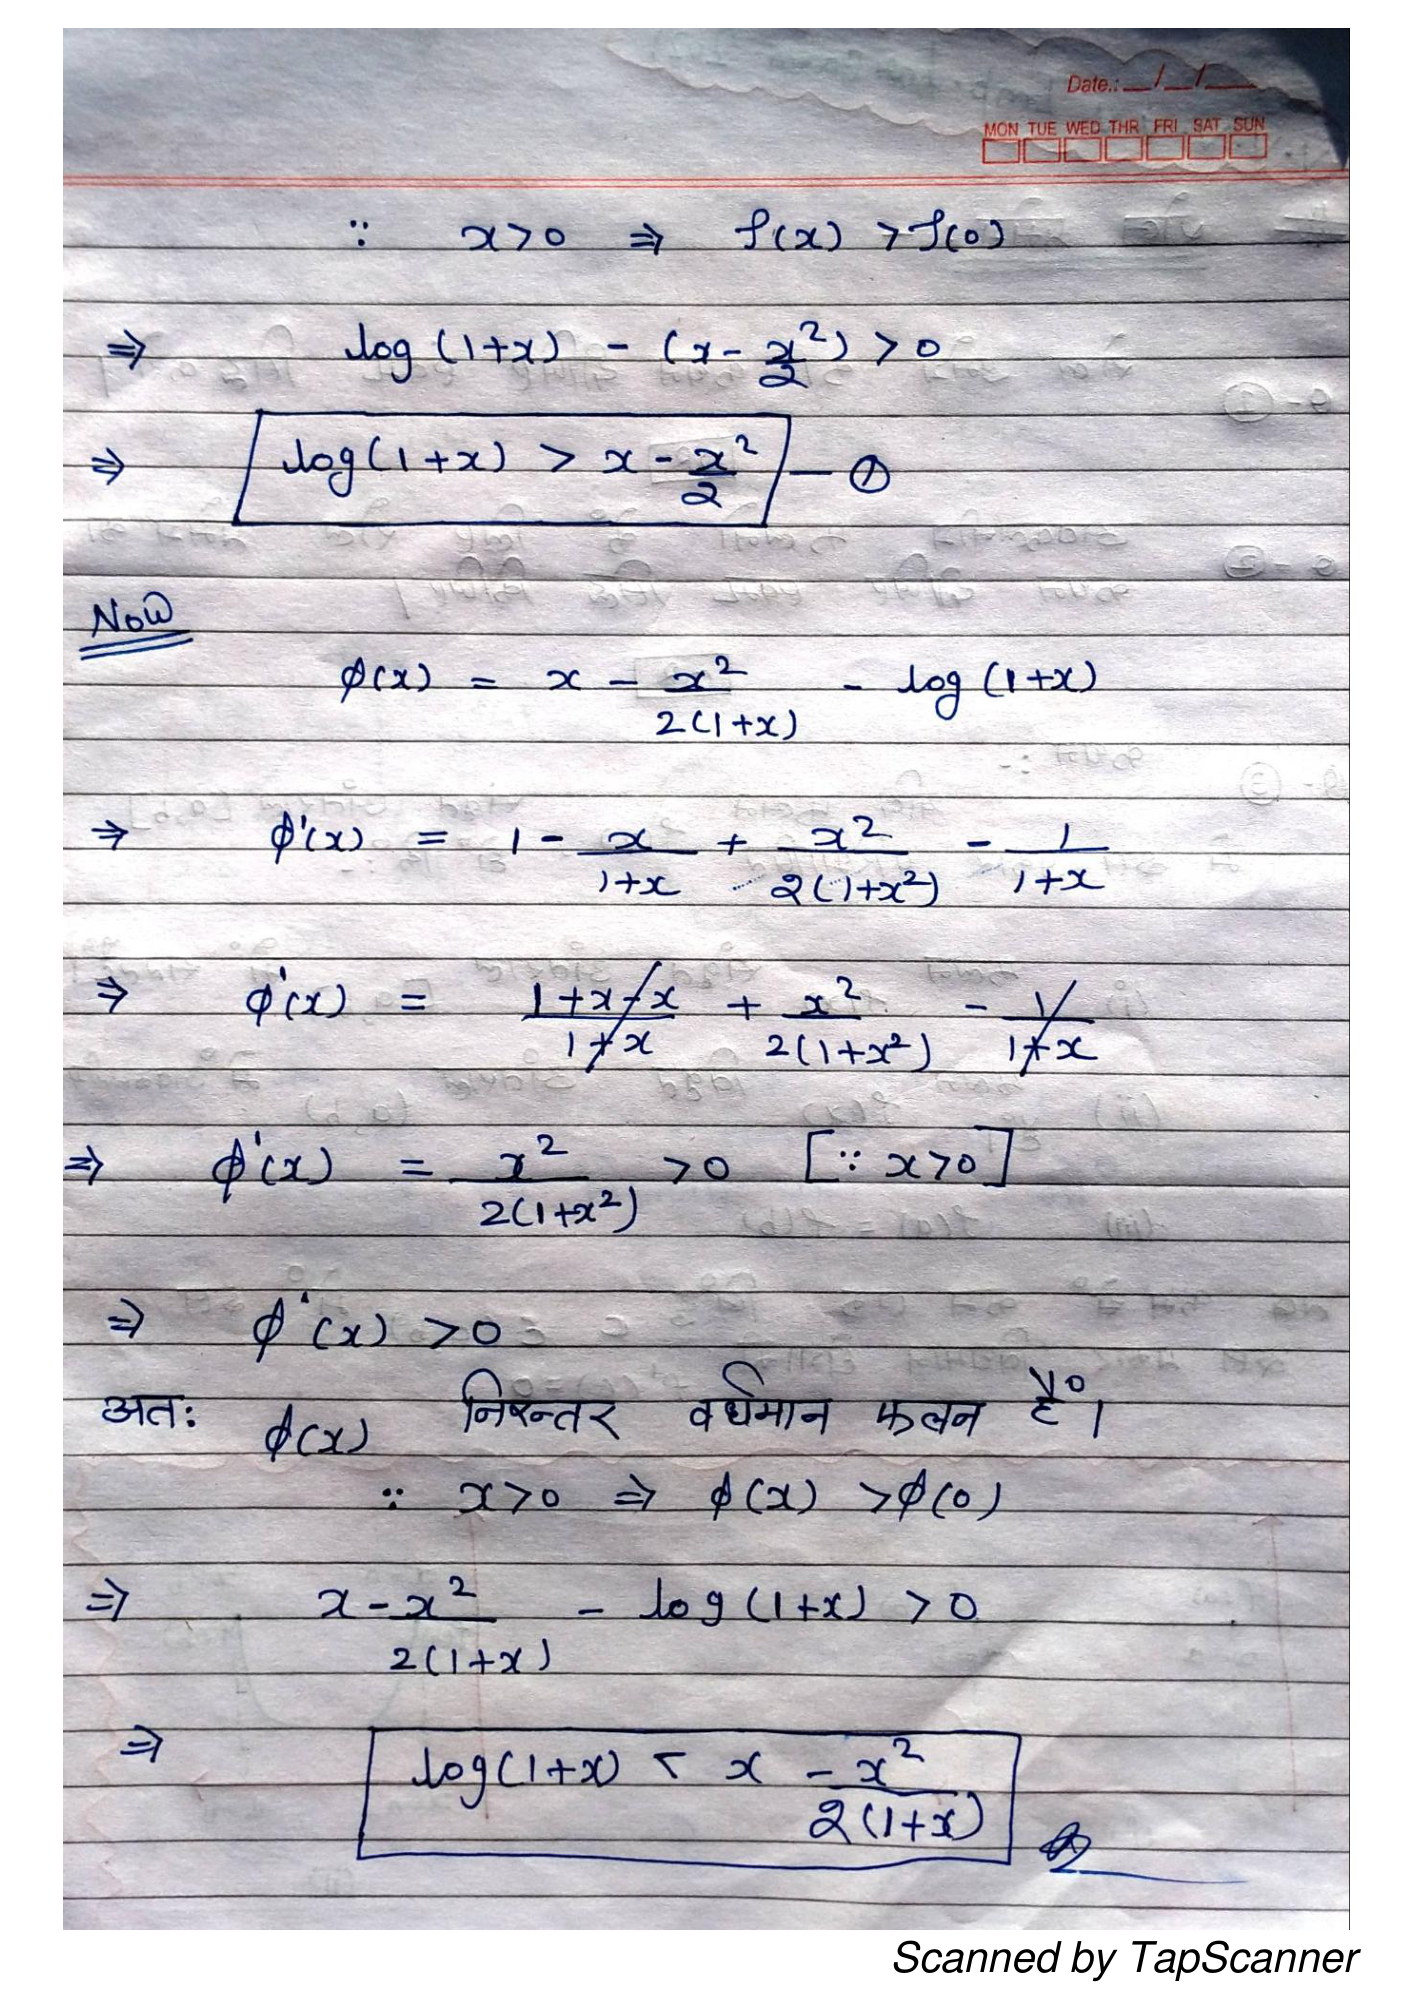 Date.: __/__/__
MON TUE WED THR FRI SAT SUN
∵ x>0 ⇒ f(x) > f(0)
⇒ log(1+x) - (x - x²/2) > 0
⇒ log(1+x) > x - x²/2 — ①
Now
φ(x) = x - x²/2(1+x) - log(1+x)
⇒ φ'(x) = 1 - x/1+x + x²/2(1+x²) - 1/1+x
⇒ φ'(x) = 1+x-x/1+x + x²/2(1+x²) - 1/1+x
⇒ φ'(x) = x²/2(1+x²) >0 [∵ x>0]
⇒ φ'(x) >0
अतः φ(x) निरन्तर वर्धमान फलन है।
∵ x>0 ⇒ φ(x) >φ(0)
⇒ x - x²/2(1+x) - log(1+x) > 0
⇒ log(1+x) < x - x²/2(1+x)
Scanned by TapScanner